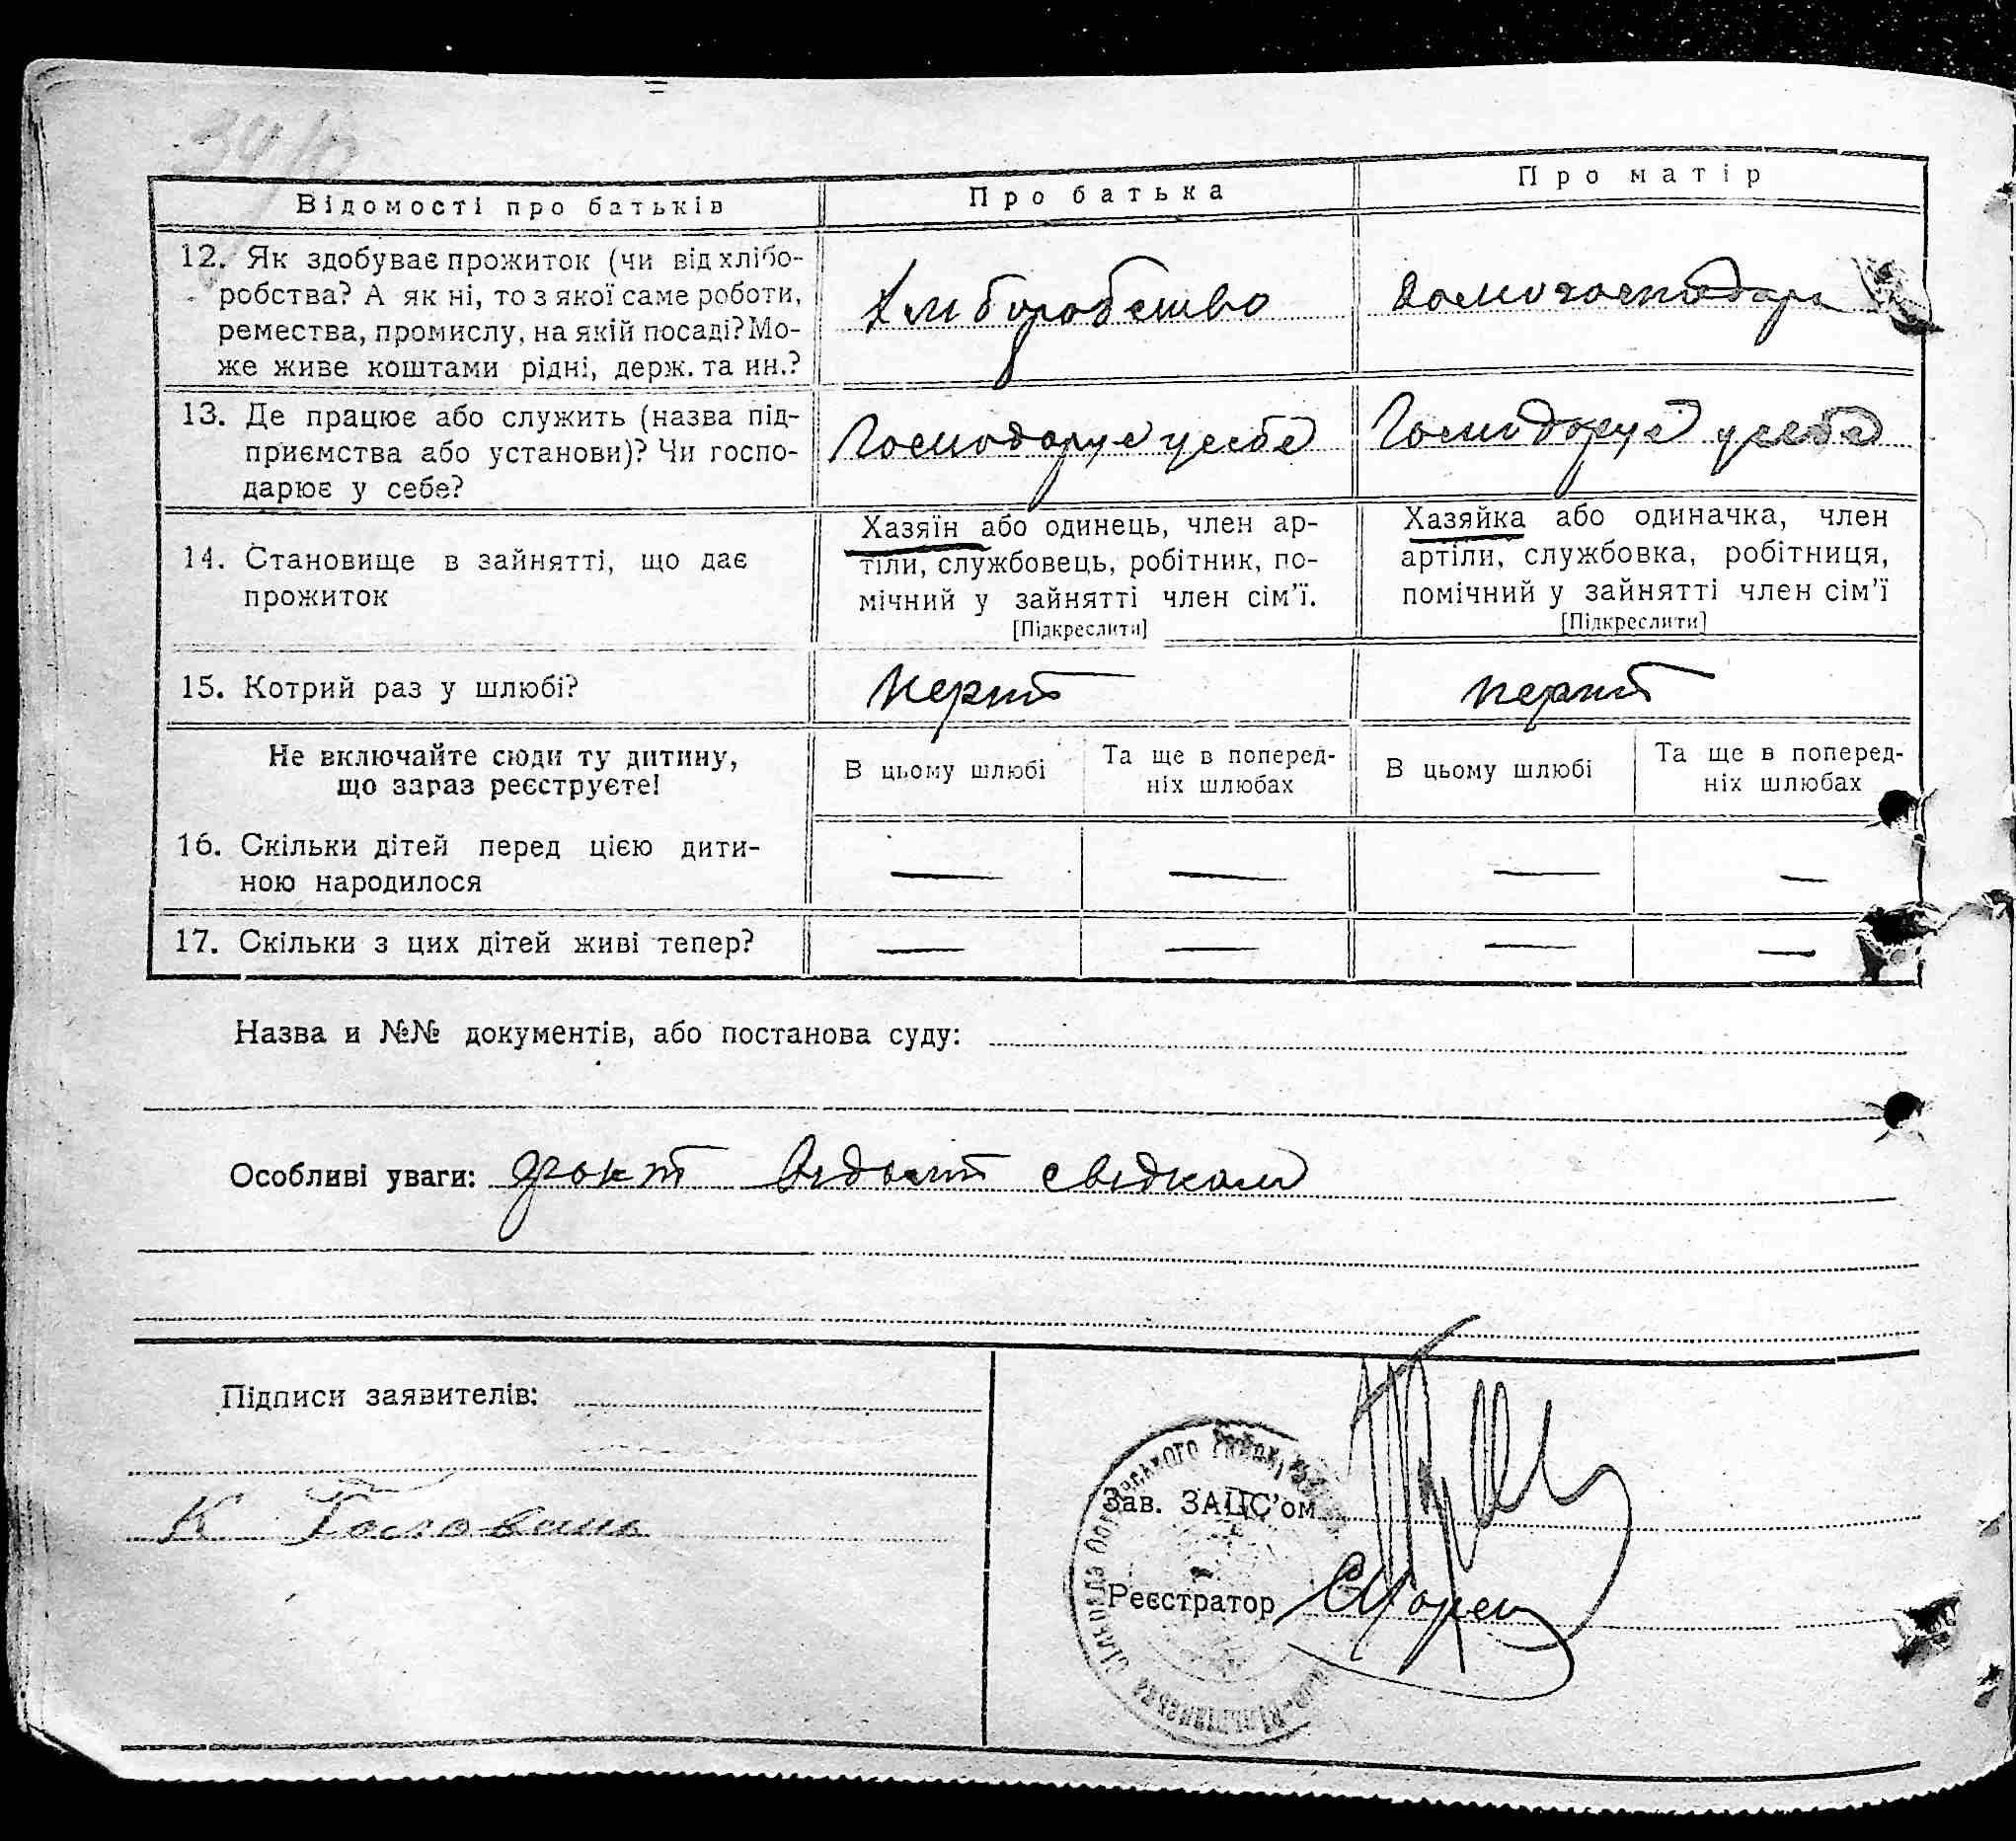 Відомості про батьків
Про батька
Про матір
12. Як здобуває прожиток (чи від хлібо-
робства? А як ні, то з якої саме роботи,
ремества, промислу, на якій посаді? Мо-
же живе коштами рідні, держ. та ин.?
хліборобство
домогосподарка
13. Де працює або служить (назва під-
приємства або установи)? Чи госпо-
дарює у себе?
Господарує у себе
Господарує у себе
14. Становище в зайнятті, що дає
прожиток
Хазяїн або одинець, член ар-
тіли, службовець, робітник, по-
мічний у зайнятті член сім’ї.
[Підкреслити]
Хазяйка або одиначка, член
артіли, службовка, робітниця,
помічний у зайнятті член сім’ї
[Підкреслити]
15. Котрий раз у шлюбі?
перший
перший
Не включайте сюди ту дитину,
що зараз реєструєте!
В цьому шлюбі
Та ще в поперед-
ніх шлюбах
В цьому шлюбі
Та ще в поперед-
ніх шлюбах
16. Скільки дітей перед цією дити-
ною народилося
— — — —
17. Скільки з цих дітей живі тепер?
— — — —
Назва и №№ документів, або постанова суду:
Особливі уваги: факт свідками
Підписи заявителів:
К
Зав. ЗАЦС’ом
Реєстратор